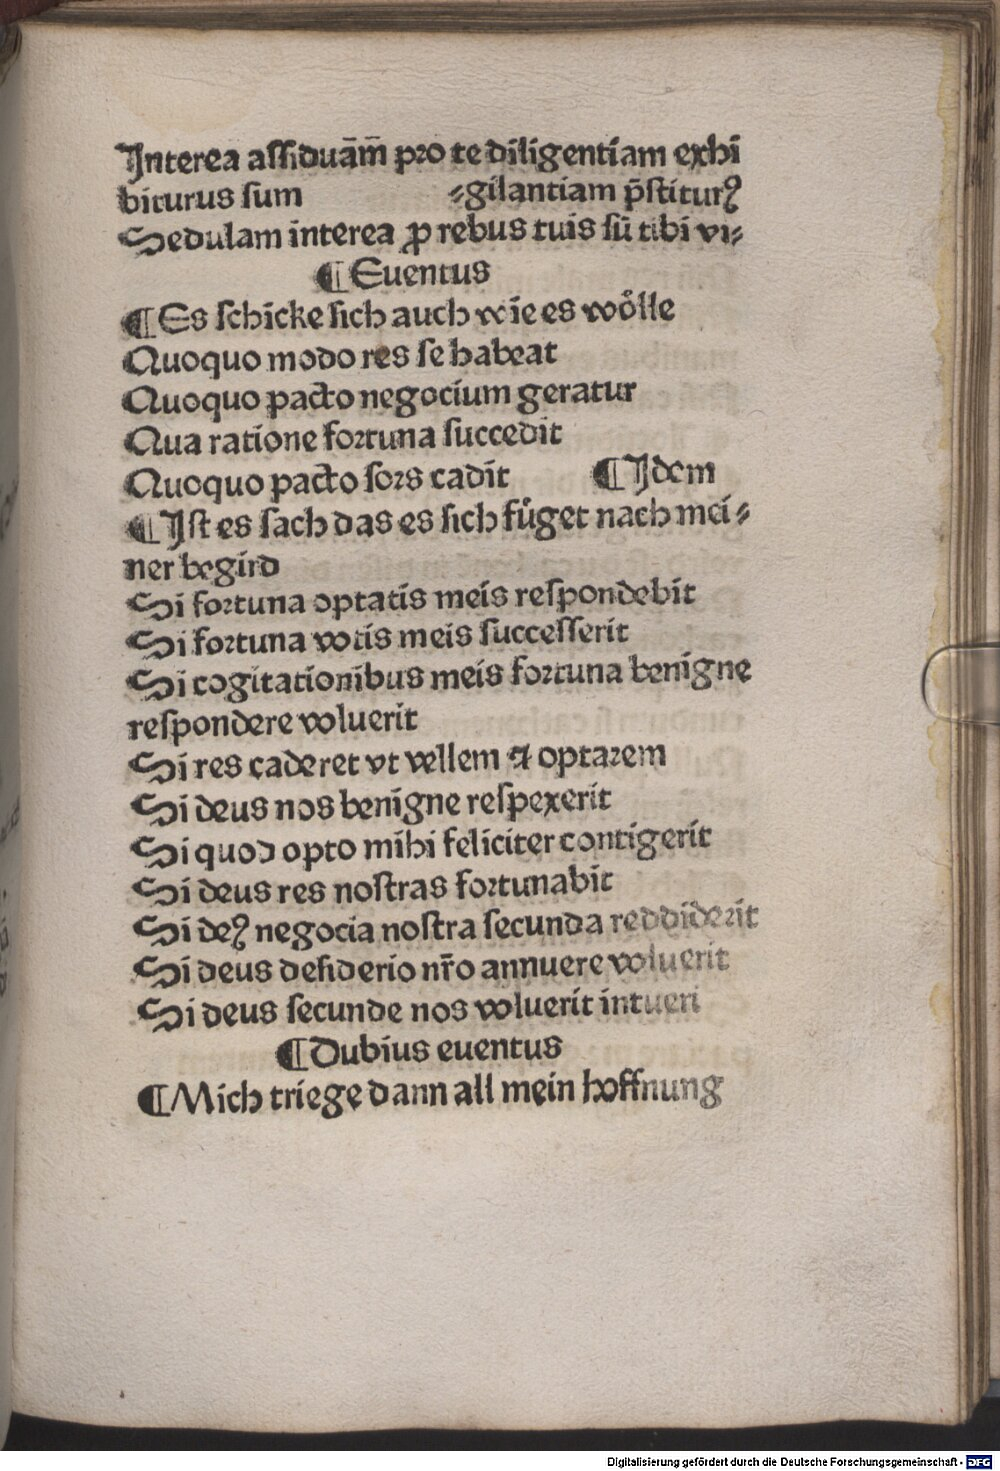 Interea aſſiduā̄m̄ pro te diligentiam exhi
biturus ſum ⸗gilantiam p̄ſtiturꝰ
Sedulam interea ꝓ rebus tuis ſū tibi vi⸗
¶ Euentus
¶ Es ſchicke ſich auch wie es woͤlle
Quoquo modo res ſe habeat
Quoquo pacto negocium geratur
Qua ratione foꝛtuna ſuccedit
Quoquo pacto ſoꝛs cadit ¶ Idem
¶ Iſt es ſach das es ſich fuͤget nach mei⸗
ner begird
Si foꝛtuna optatis meis reſpondebit
Si foꝛtuna votis meis ſucceſſerit
Si cogitationibus meis foꝛtuna benigne
reſpondere voluerit
Si res caderet vt vellem ⁊ optaꝛem
Si deus nos benigne reſpexerit
Si quod opto mihi feliciter contigerit
Si deus res noſtras foꝛtunabit
Si deꝰ negocia noſtra ſecunda reddiderit
Si deus deſiderio nr̄o annuere voluerit
Si deus ſecunde nos voluerit intueri
¶ Dubius euentus
¶ Mich triege dann all mein hoffnung
Digitalisierung gefördert durch die Deutsche Forschungsgemeinschaft - DFG